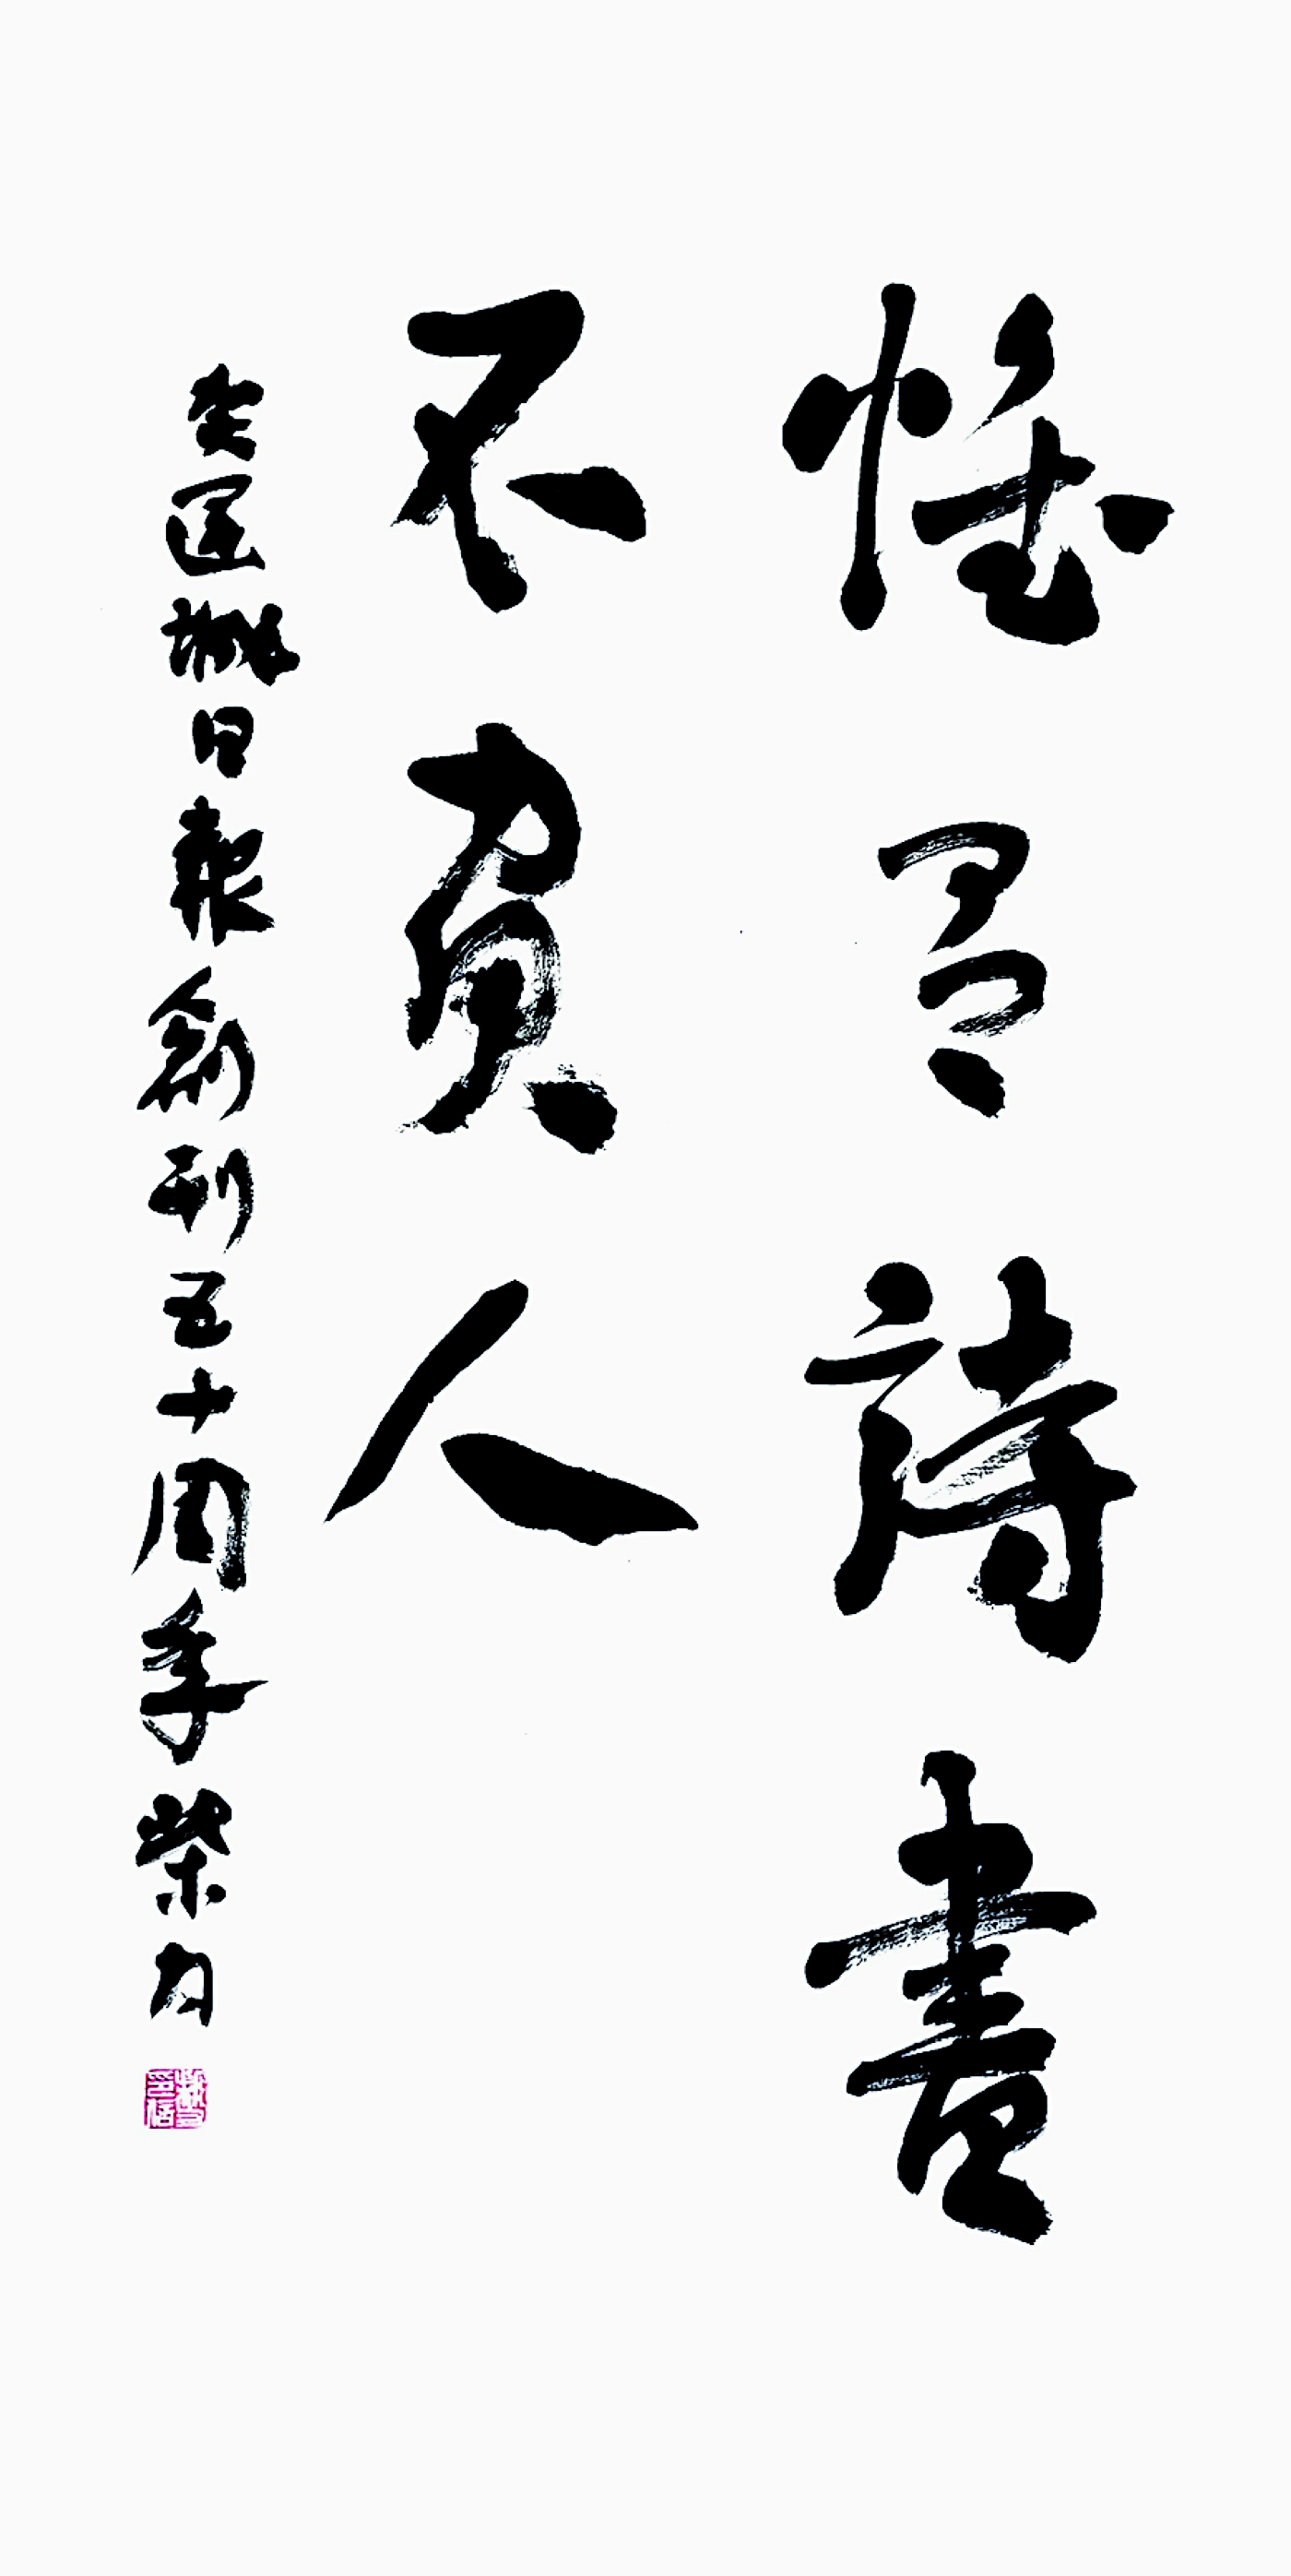 惟有詩書
不負人
賀運城日報創刊五十周年 柴有